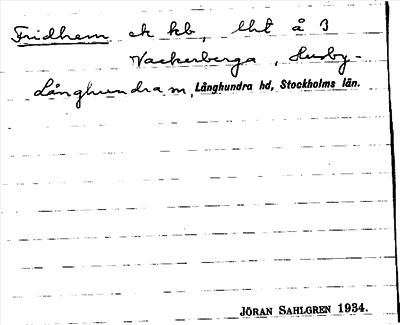 Fridhem ek kb, lht å 3
Vackerberga, Husby-
Långhundra m, Långhundra hd, Stockholms län.
JÖRAN SAHLGREN 1934.